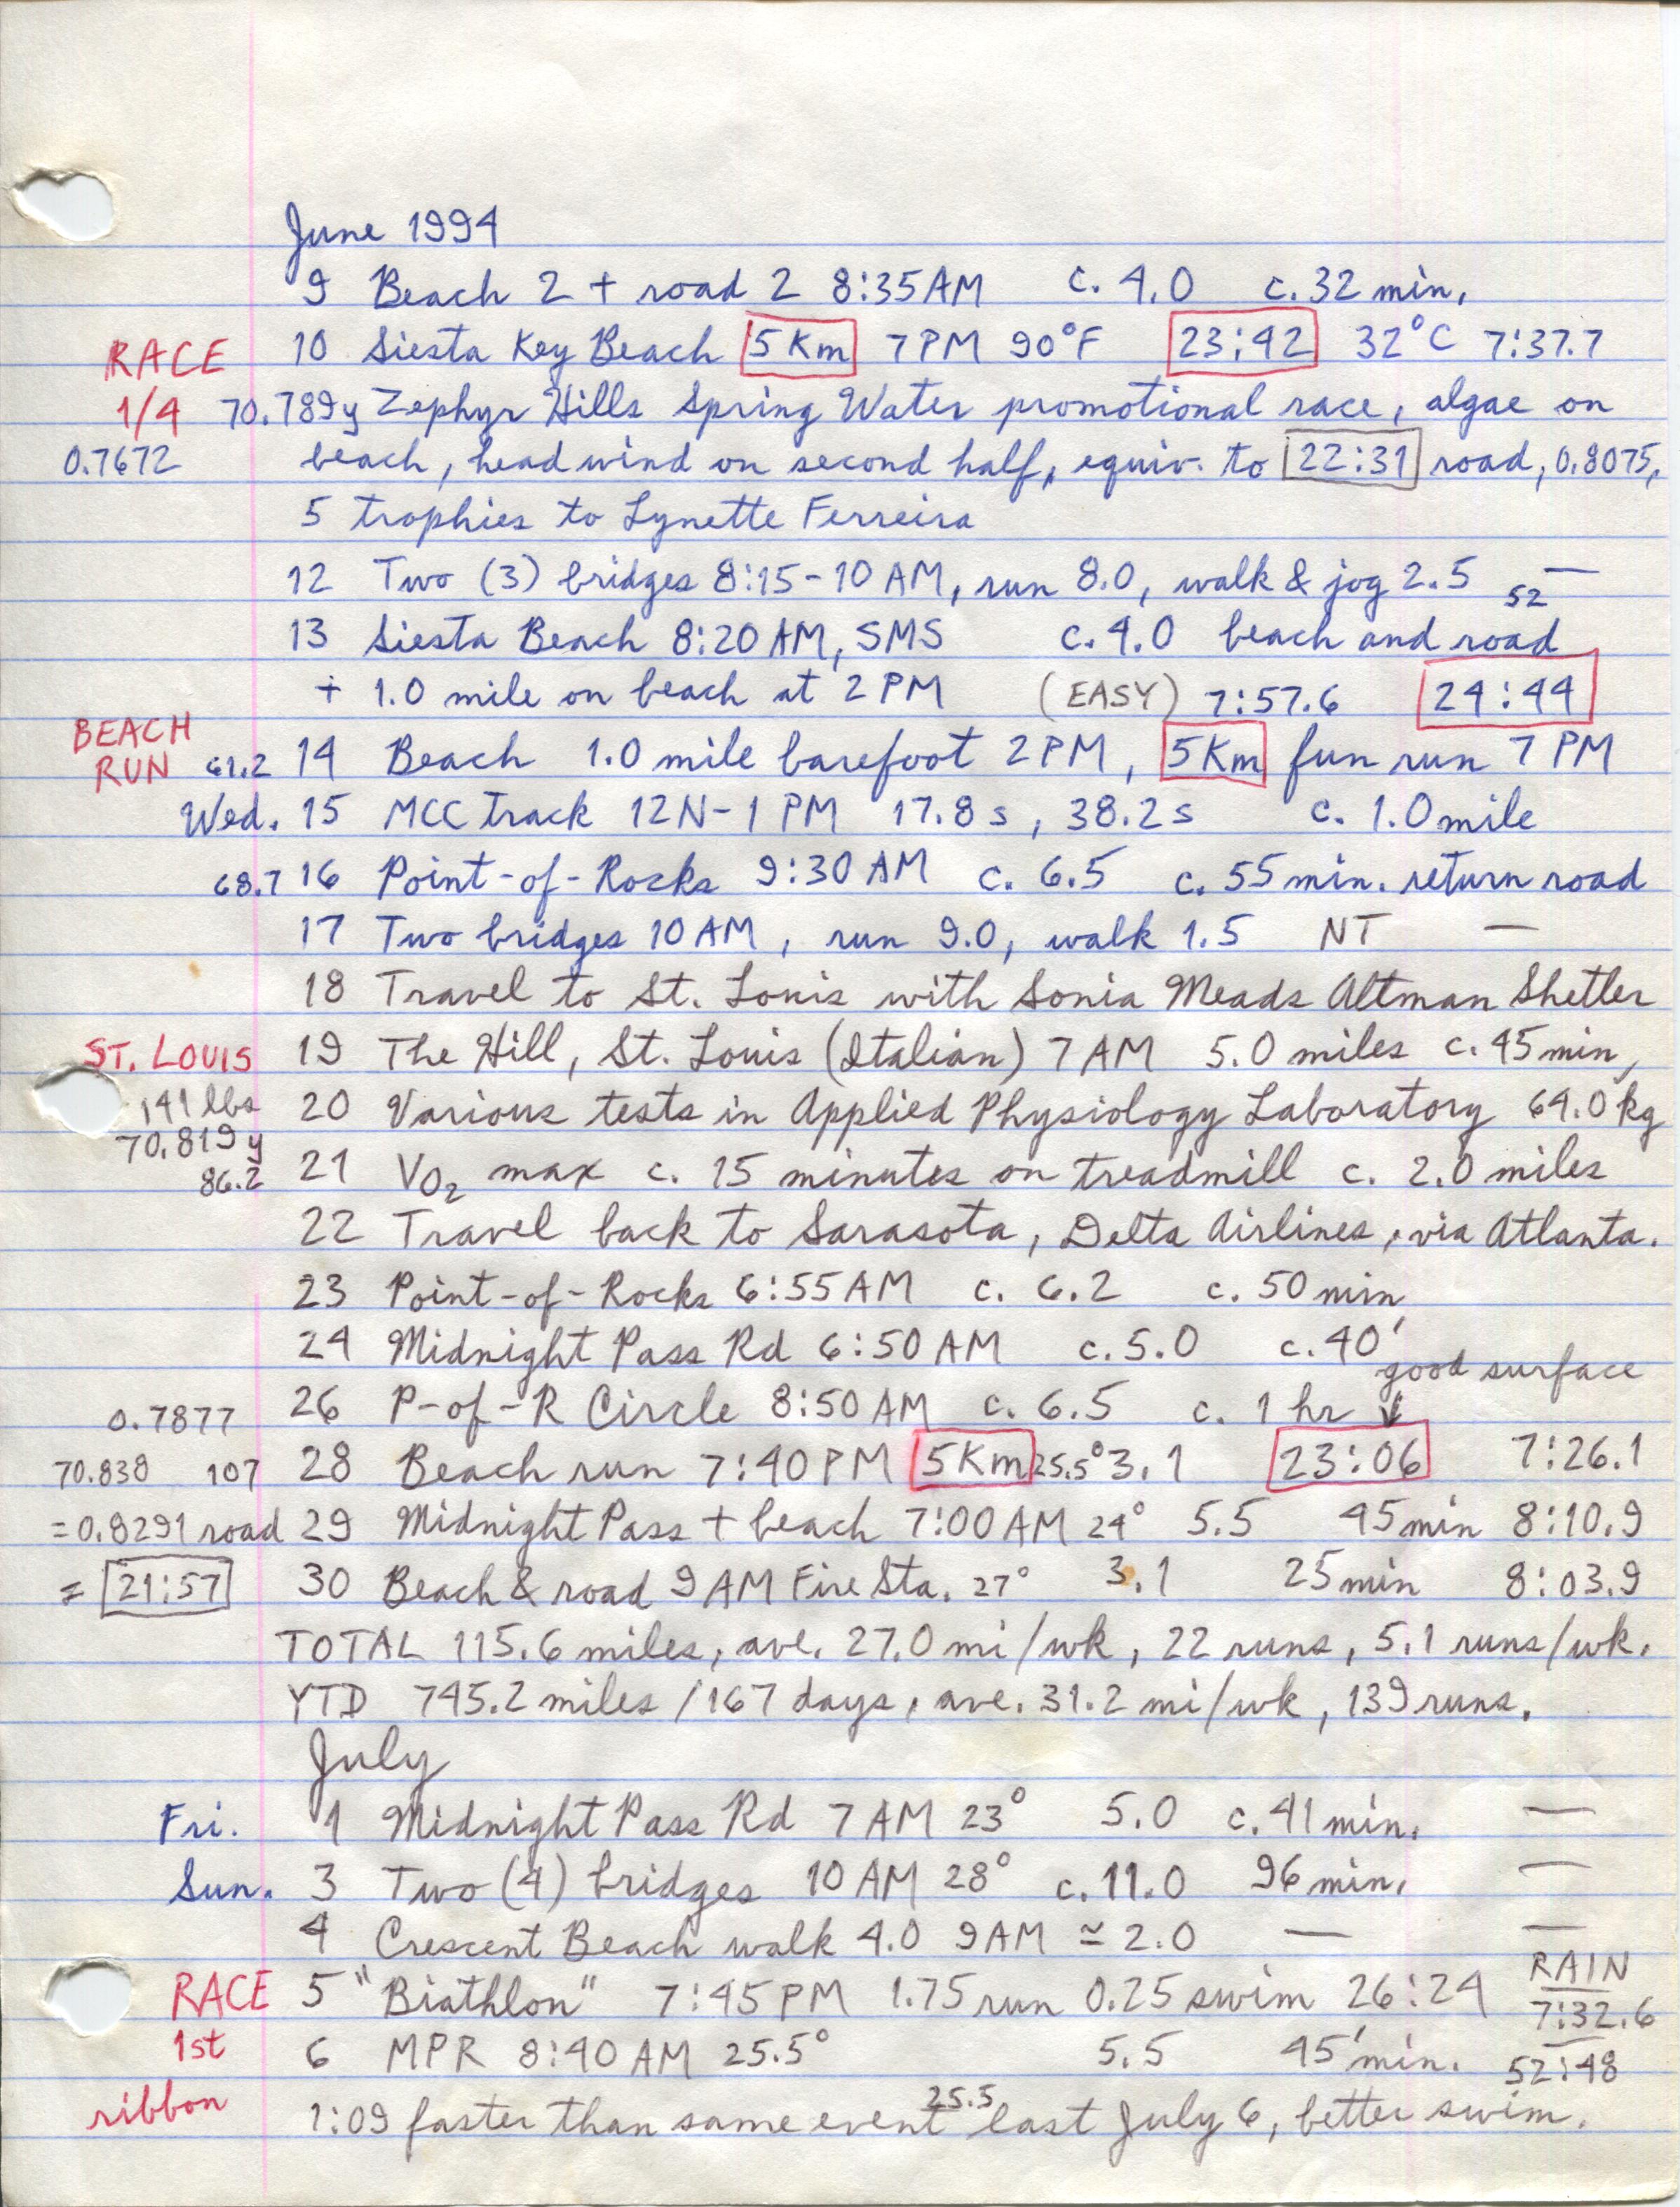 June 1994
9 Beach 2 + road 2 8:35 AM c. 4.0 c. 32 min.
RACE 10 Siesta Key Beach 5 Km 7 PM 90°F 23:42 32°C 7:37.7
1/4 70.789y Zephyr Hills Spring Water promotional race, algae on
0.7672 beach, head wind on second half, equiv. to 22:31 road, 0.8075,
5 trophies to Lynette Ferreira
12 Two (3) bridges 8:15-10 AM, run 8.0, walk & jog 2.5 52 —
13 Siesta Beach 8:20 AM, SMS c. 4.0 beach and road
+ 1.0 mile on beach at 2 PM (EASY) 7:57.6 24:44
BEACH
RUN 61.2 14 Beach 1.0 mile barefoot 2 PM, 5 Km fun run 7 PM
Wed. 15 MCC track 12N-1 PM 17.8 s, 38.2 s c. 1.0 mile
68.7 16 Point-of-Rocks 9:30 AM c. 6.5 c. 55 min. return road
17 Two bridges 10 AM, run 9.0, walk 1.5 NT —
18 Travel to St. Louis with Sonia Meads Altman Shetler
ST. LOUIS 19 The Hill, St. Louis (Italian) 7 AM 5.0 miles c. 45 min,
141 lbs 20 Various tests in Applied Physiology Laboratory 64.0 kg
70.819 y
86.2 21 VO2 max c. 15 minutes on treadmill c. 2.0 miles
22 Travel back to Sarasota, Delta Airlines, via Atlanta.
23 Point-of-Rocks 6:55 AM c. 6.2 c. 50 min
24 Midnight Pass Rd 6:50 AM c. 5.0 c. 40'
good surface
0.7877 26 P-of-R Circle 8:50 AM c. 6.5 c. 1 hr ↓
70.838 107 28 Beach run 7:40 PM 5 Km 25.5° 3.1 23:06 7:26.1
=0.8291 road 29 Midnight Pass + beach 7:00 AM 24° 5.5 45 min 8:10.9
= 21:57 30 Beach & road 9 AM Fire Sta. 27° 3.1 25 min 8:03.9
TOTAL 115.6 miles, ave. 27.0 mi/wk, 22 runs, 5.1 runs/wk.
YTD 745.2 miles / 167 days, ave. 31.2 mi/wk, 139 runs.
July
Fri. 1 Midnight Pass Rd 7 AM 23° 5.0 c. 41 min. —
Sun. 3 Two (4) bridges 10 AM 28° c. 11.0 96 min. —
4 Crescent Beach walk 4.0 9 AM ≃ 2.0 — —
RAIN
RACE 5 "Biathlon" 7:45 PM 1.75 run 0.25 swim 26:24 7:32.6
1st 6 MPR 8:40 AM 25.5° 5.5 45' min. 52:48
25.5
ribbon 1:09 faster than same event last July 6, better swim.